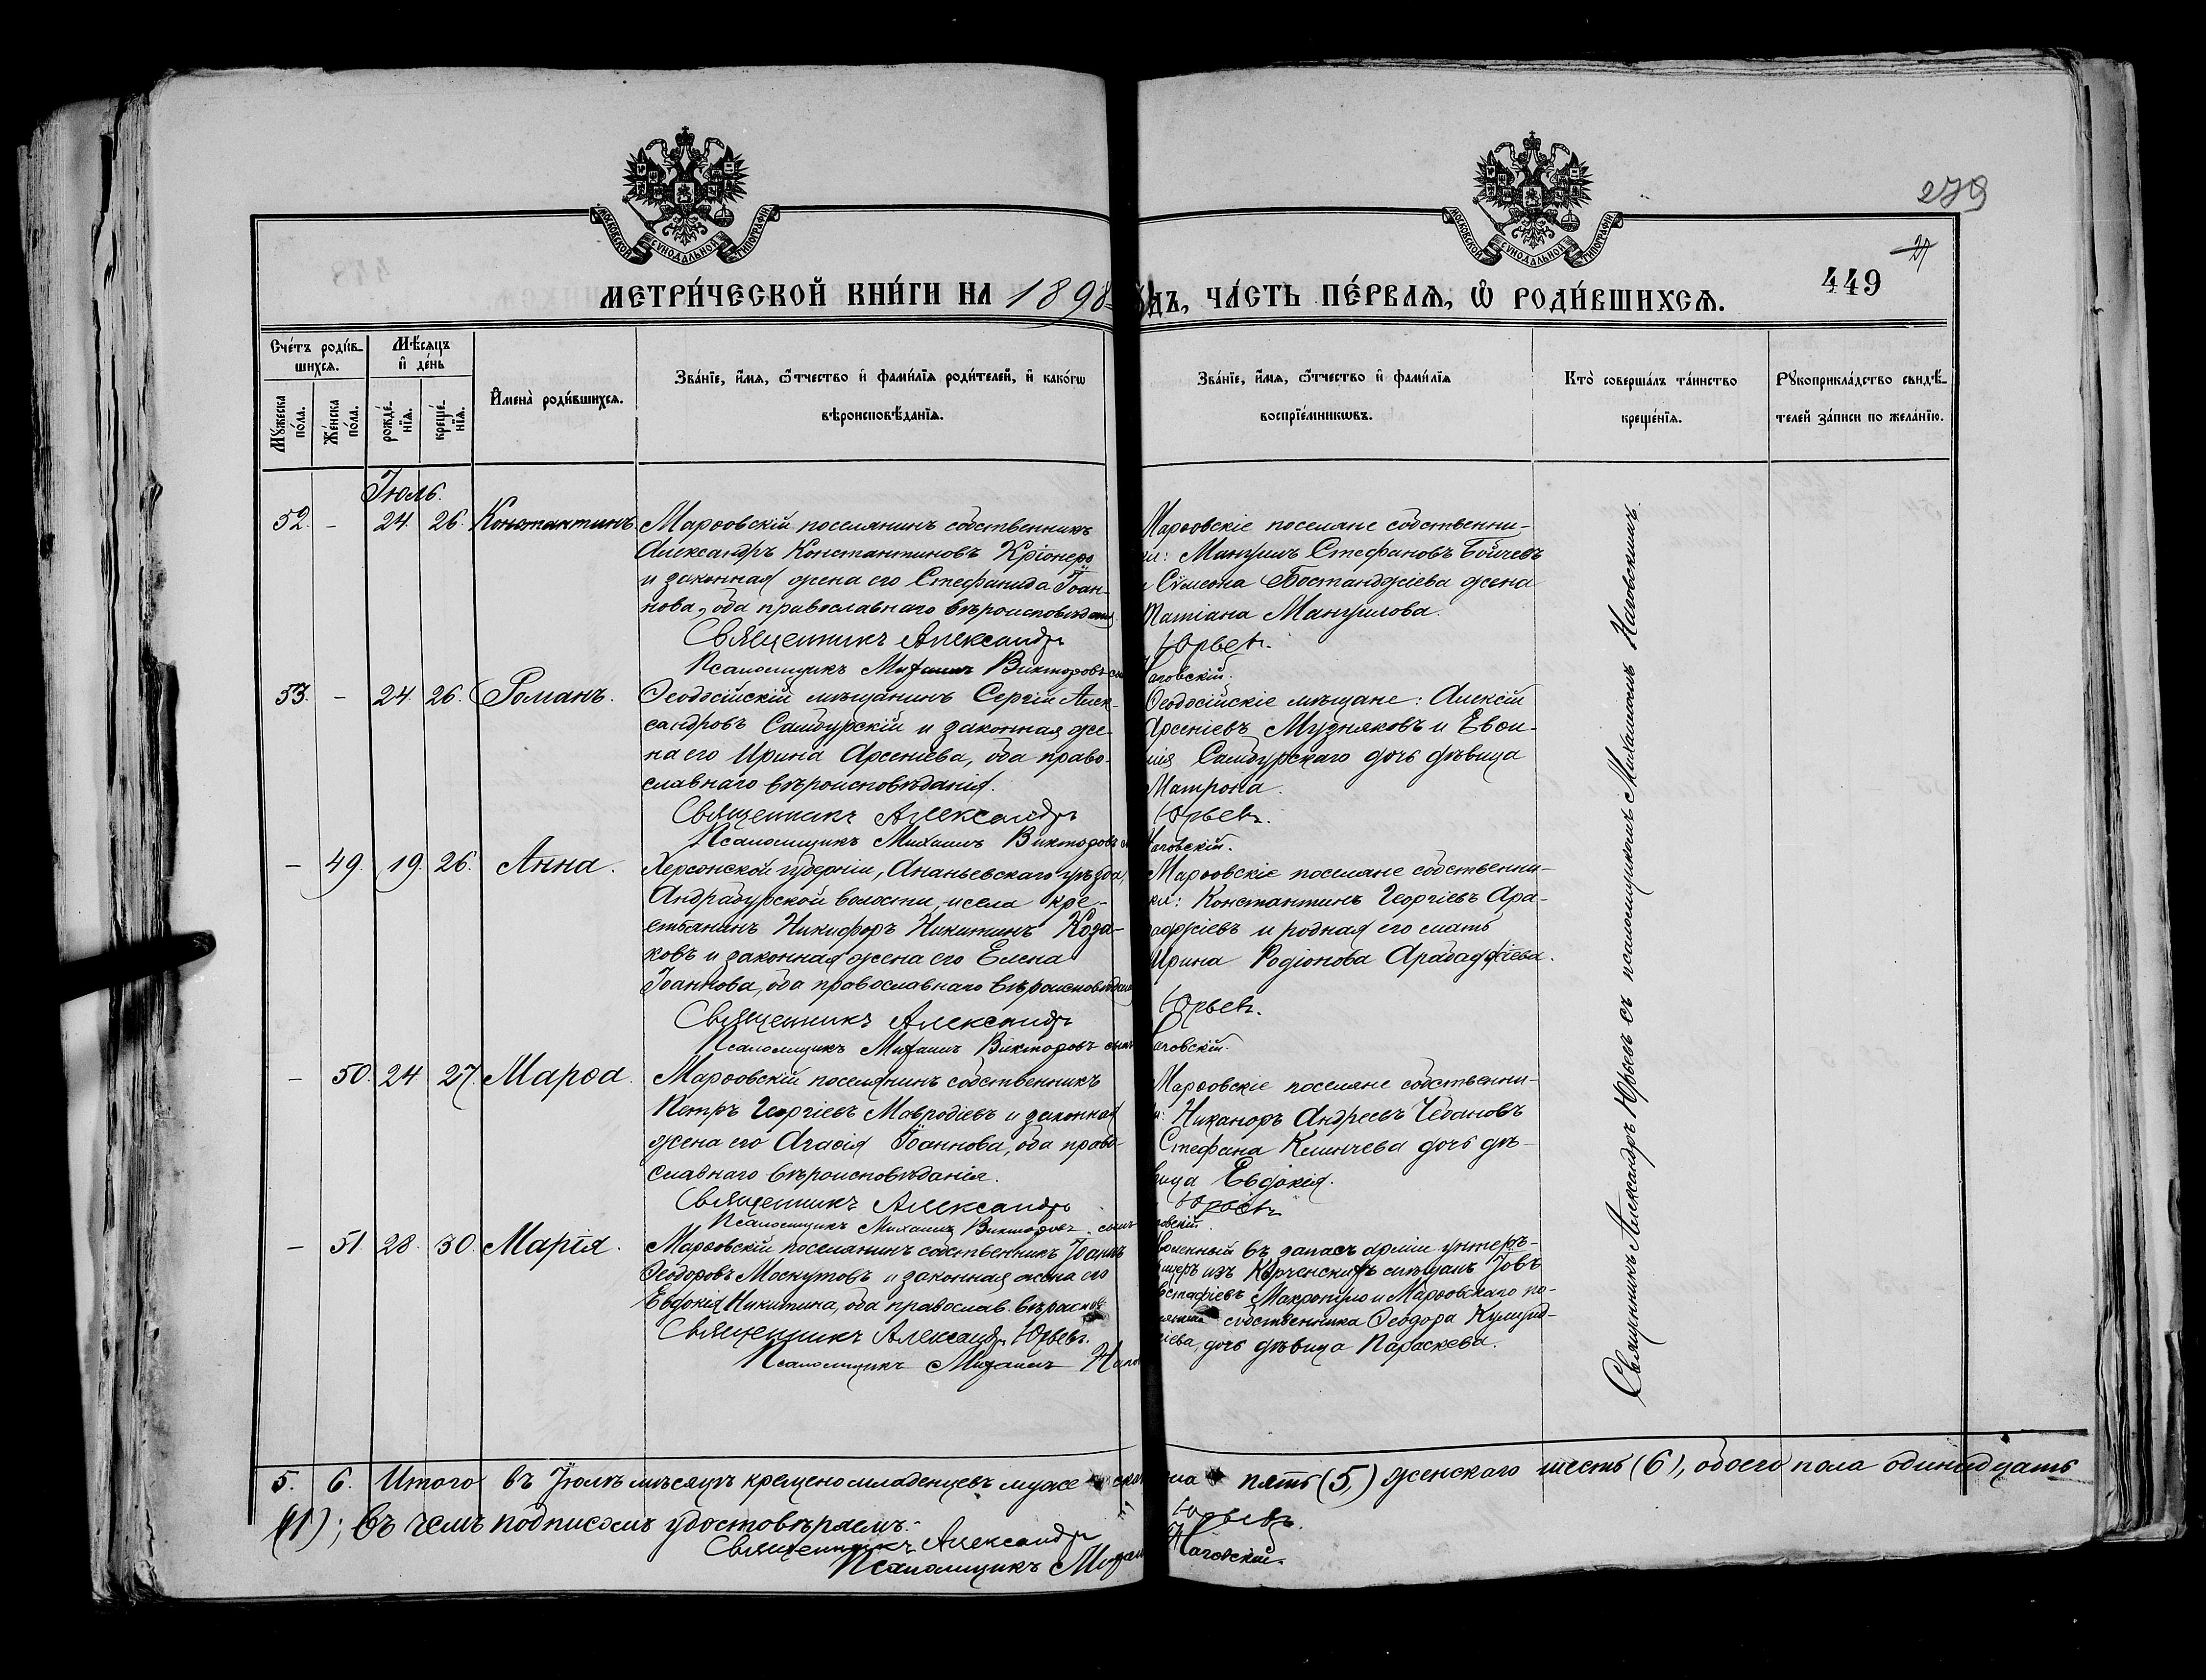 279
21
449
МОСКОВСКОЙ СѴНОДАЛЬНОЙ ТИПОГРАФІИ
МОСКОВСКОЙ СѴНОДАЛЬНОЙ ТИПОГРАФІИ
МЕТРИ́ЧЕСКОЙ КНИ́ГИ НА 1898
ДЪ, ЧА́СТЬ ПЕ́РВАѦ, Ѡ РОДИ́ВШИХСѦ.
Сче́тъ роди́вшихсѧ.
Мѣ́сѧцъ и҆ де́нь
Мꙋжеска по́ла.
Же́нска по́ла.
рожде́нїѧ.
креще́нїѧ.
И҆мена̀ роди́вшихсѧ.
Зва́нїе, и҆́мѧ, ѻ҆́тчество и҆ фами́лїѧ роди́телей, и҆ како́гѡ
вѣроисповѣ́данїѧ.
Зва́нїе, и҆́мѧ, ѻ҆́тчество и҆ фами́лїѧ
воспрїе́мникѡвъ.
Кто̀ соверша́лъ та́инство
креще́нїѧ.
Рꙋкоприкла́дство свидѣ́-
телей за́писи по жела́нїю.
Іюль.
52. - 24. 26. Константинъ.
Марѳовскій поселянинъ собственникъ
Александръ Константиновъ Кріонеро
и законная жена его Стефанида Іоан-
нова, оба православнаго вѣроисповѣданія
Священникъ Александръ
Псаломщикъ Михаилъ Викторовъ
Марѳовскіе поселяне собственни-
ки: Мануилъ Стефановъ Бойчевъ
и Сѵмеона Бостанджіева жена
Татіана Мануилова.
Юрьевъ.
Наговскій.
53. - 24. 26. Романъ.
Ѳеодосійскій мѣщанинъ Сергій Алек-
сандровъ Самбурскій и законная же-
на его Ирина Арсеніева, оба право-
славнаго вѣроисповѣданія.
Священникъ Александръ
Псаломщикъ Михаилъ Викторовъ
Ѳеодосійскіе мѣщане: Алексій
Арсеніевъ Музняковъ и Евѳи-
мія Самбурскаго дочь дѣвица
Матрона.
Юрьевъ.
Наговскій.
- 49. 19. 26. Анна.
Херсонской губерніи, Ананьевскаго уѣзда,
Андрабурской волости, и села кре-
стьянинъ Никифоръ Никитинъ Коза-
ковъ и законная жена его Елена
Іоаннова, оба православнаго вѣроисповѣданія
Священникъ Александръ
Псаломщикъ Михаилъ Викторовъ сынъ
Марѳовскіе поселяне собственни-
ки: Константинъ Георгіевъ Ара-
баджіевъ и родная его мать
Ирина Родіонова Арабаджіева.
Юрьевъ.
Наговскій.
- 50. 24 27. Марѳа.
Марѳовскій поселянинъ собственникъ
Петръ Георгіевъ Мавродіевъ и законная
жена его Агафія Іоаннова, оба право-
славнаго вѣроисповѣданія.
Священникъ Александръ
Псаломщикъ Михаилъ Викторовъ сынъ
Марѳовскіе поселяне собственни-
ки: Никаноръ Андреевъ Чебановъ
Стефана Климчева дочь дѣ-
вица Евдокія.
Юрьевъ
- 51 28. 30. Марія.
Марѳовскій поселянинъ собственникъ Іоаннъ
Ѳеодоровъ Москутовъ и законная жена его
Евдокія Никитина, оба православ. вѣроиспов
Священникъ Александръ Юрьевъ.
Псаломщикъ Михаилъ
въ запасъ арміи унтеръ-
изъ Керченскихъ мѣщанъ Іовъ
Макропуло и Марѳовскаго по-
собственника Ѳеодора
дочь дѣвица Параскева.
Священникъ Александръ Юрьевъ съ псаломщикомъ Михаиломъ Наговскимъ.
5. 6. Итого въ Іюлѣ мѣсяцѣ крещено младенцевъ муже пять (5,) женскаго шесть (6), обоего пола одинадцать
(11); въ чемъ подписомъ удостовѣряемъ.
Священникъ Александръ Юрьевъ.
Псаломщикъ Михаилъ Наговскій.